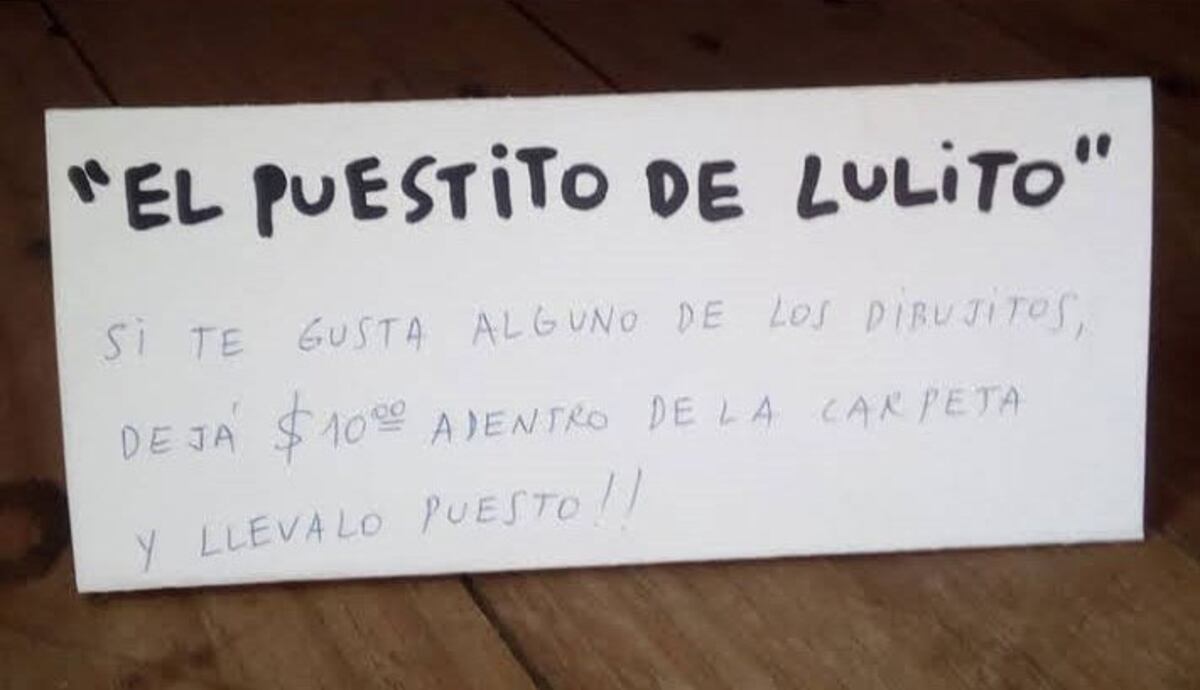 "EL PUESTiTO DE LULiTO"
Si TE GUSTA ALGUNO DE LOS DiBUJiTOS,
DEJÁ $10⁰⁰ ADENTRO DE LA CARPETA
Y LLEVALO PUESTO!!